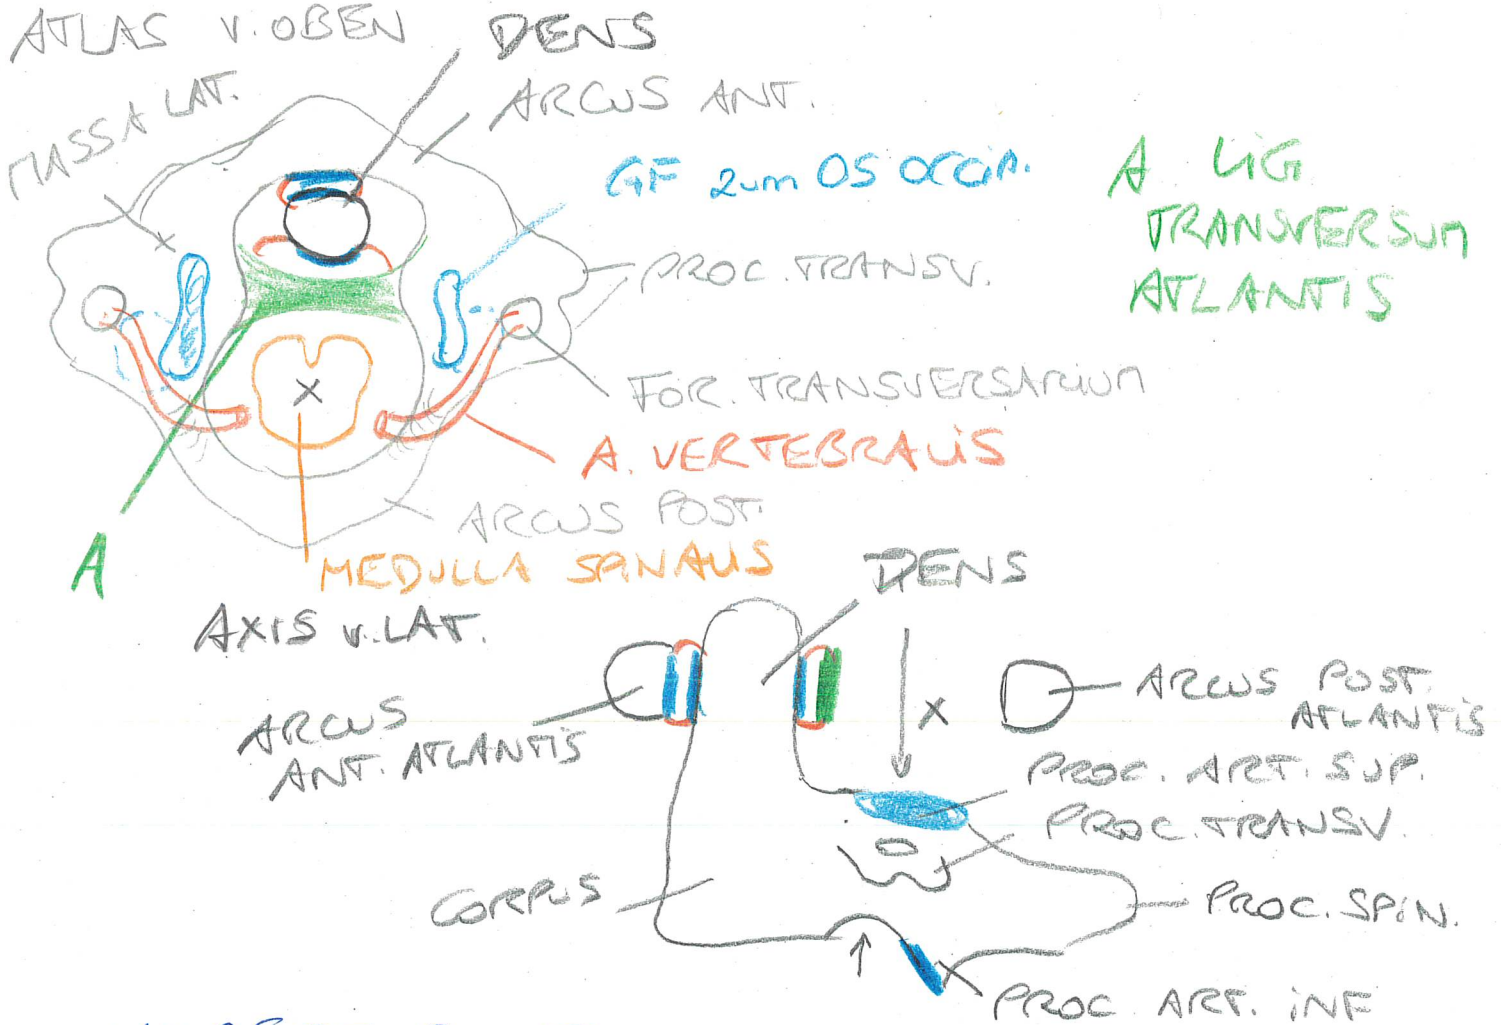 ATLAS V. OBEN
DENS
MASSA LAT.
ARCUS ANT.
GF zum OS OCCIP.
A LIG
TRANSVERSUM
ATLANTIS
PROC. TRANSV.
FOR. TRANSVERSARIUM
X
A. VERTEBRALIS
ARCUS POST.
A
MEDULLA SPINALIS
DENS
AXIS v. LAT.
ARCUS
ANT. ATLANTIS
X
ARCUS POST.
ATLANTIS
PROC. ART. SUP.
PROC. TRANSV.
CORPUS
PROC. SPIN.
PROC. ART. INF